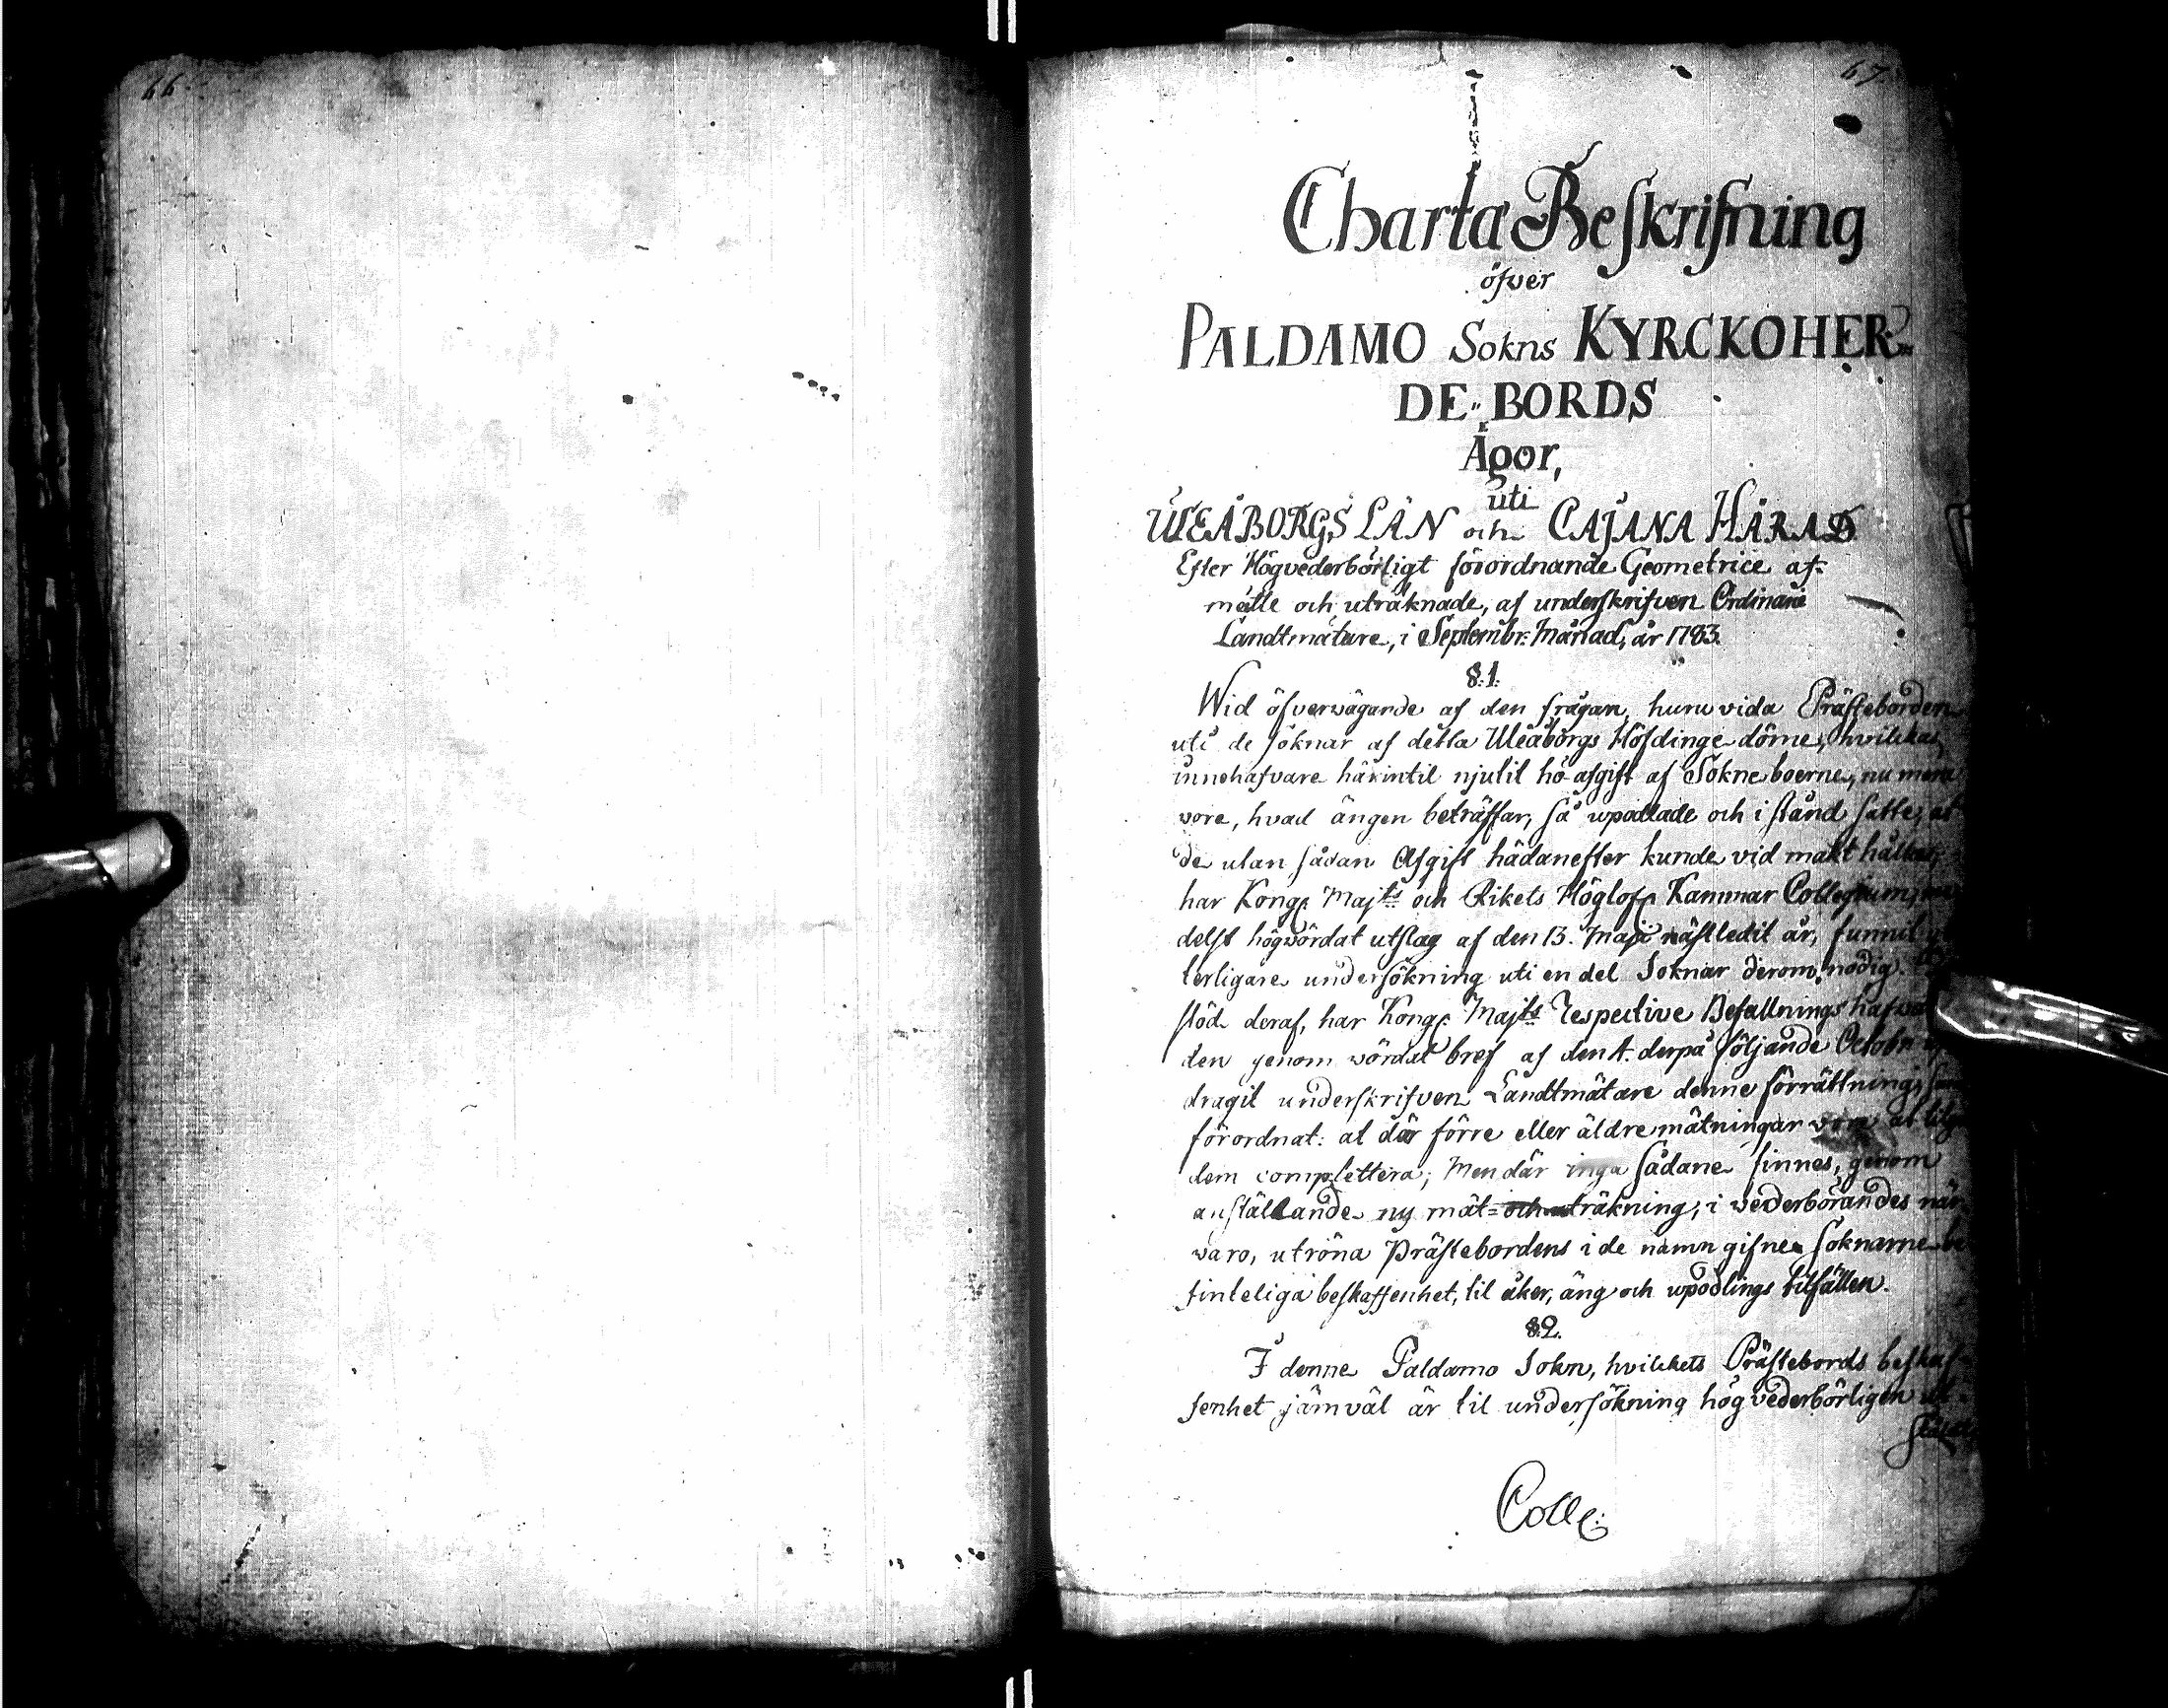 66.
67.
Charta Beskrifning
öfver
PALDAMO Sokns KYRCKOHER-
DE-BORDS
Ägor,
uti
ULEÅBORGS LÄN och CAJANA HÄRAD
Efter Högvederbörligt förordnande Geometrice af-
mätte och uträknade, af underskrifven Ordinarie
Landtmätare, i Septembr: Månad, år 1783.
§.1.
Wid öfverwägande af den frågan, huru vida Prästeborden
uti de soknar af detta Uleåborgs Höfdinge döme, hvilkas
innehafvare härintil njutit hö-afgift af Sokneboerne, nu mera
vore, hvad ängen beträffar, så upodlade och i stånd satte, at
de utan sådan Afgift hädanefter kunde vid makt hållas,
har Kongl. Maj:ts och Rikets Höglofl. Kammar Collegium,
delst högwördat utslag af den 13. Maji näst ledit år, funnit
terligare undersökning uti en del Soknar derom nödig.
stöd deraf, har Kongl. Maj:ts respective Befallningshafwan
den genom wördat bref af den 4. derpå följande Octobr.
dragit underskrifven Landtmätare denne förrättning,
förordnat: at där förre eller äldre mätningar vore, at
dem complettera; Men där inga sådane finnes, genom
anställande ny mät- och uträkning, i vederbörandes när
varo, utröna Prästebordens i de nämn gifne Soknarne be
finteliga beskaffenhet, til åker, äng och upodlings tilfällen.
§.2.
I denne Paldamo Sokn, hvilkets Prästebords beskaf-
fenhet jämväl är til undersökning högvederbörligen ut-
Coll.